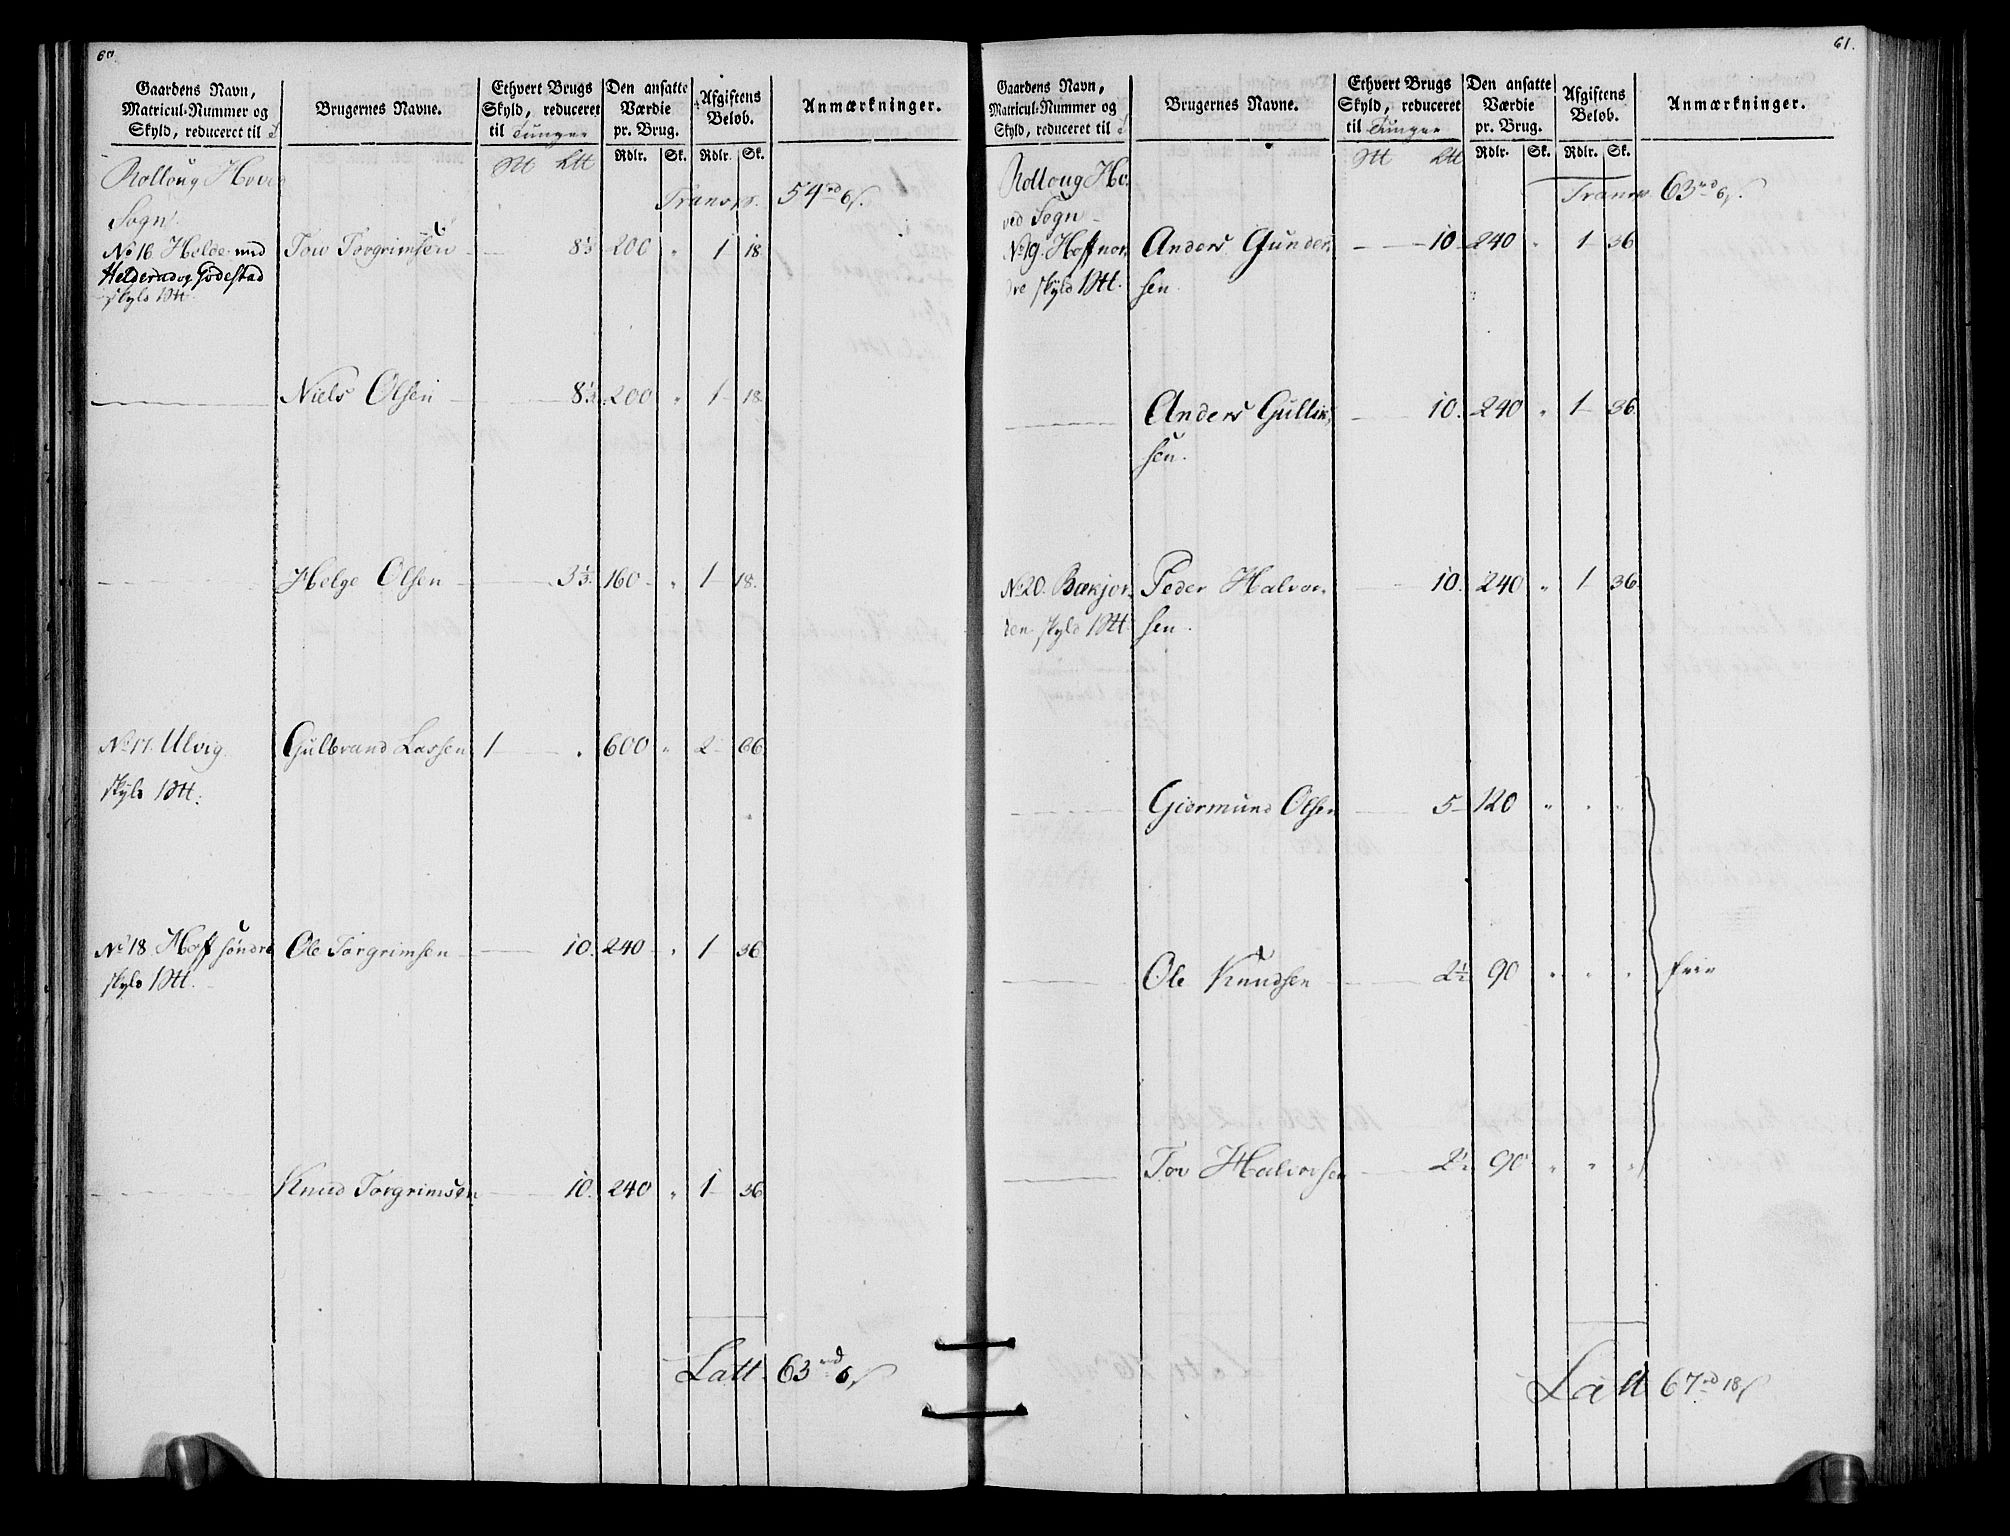 60.
Gaardens Navn, Matricul-Nummer og Skyld, reduceret til
Brugernes Navne.
Ethvert Brugs Skyld, reduceret til Tunger
Den ansatte Værdie pr. Brug.
Afgiftens Beløb.
Anmærkninger.
Rdlr. Sk. Rdlr. Sk.
Rolloug Hoved
Sogn.
Transp. 54 rd 6 s.
No 16 Helde med Tov Torgrimsen 8 1/3 200 " 1 18
Helderud og Godestad
skyld 1 Htt.
Niels Olsen 8 1/3 200 " 1 18
Helge Olsen 3 1/3 160 " 1 18.
No 17. Ulvig Gulbrand Larsen 1 " 600 " 2 66
skyld 1 Htt.
No 18 Hoff søndre Ole Torgrimsen 10. 240 " 1 36
skyld 1 Htt.
Knud Torgrimsen 10. 240 " 1 36
Latt. 63 rd 6 s
61.
Gaardens Navn, Matricul-Nummer og Skyld, reduceret til
Brugernes Navne.
Ethvert Brugs Skyld, reduceret til Tunger
Den ansatte Værdie pr. Brug.
Afgiftens Beløb.
Anmærkninger.
Rdlr. Sk. Rdlr. Sk.
Rolloug Ho-
ved Sogn
Transp 63 rd 6 s.
No 19. Hoff nor- Anders Gunder- 10 240 " 1 36
dre skyld 1 Htt. sen.
Anders Gullik- 10. 240 " 1 36.
sen.
No 20. Bækjor- Peder Halvor- 10. 240 " 1 36.
den skyld 1 Htt sen.
Giermund Olsen 5 120 " " "
Ole Knudsen 2 1/2 90 " " " frie
Tov Halvorsen 2 1/2 90 " " "
Latt 67 rd 18 s